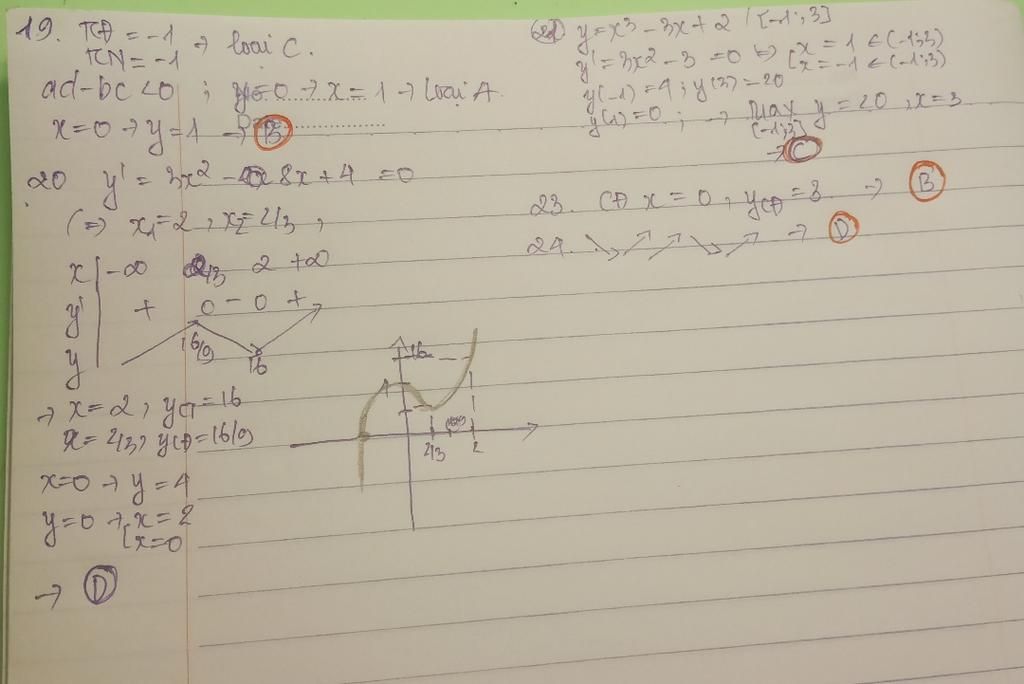 19. TCĐ = -1
TCN = -1 → loại C.
ad-bc<0 ; y=0 → x=1 → Loại A.
x=0 → y=1 → B
20 y' = 3x² - 8x+4 =0
(=> x₁=2, x₂=2/3,
x | -∞ 2/3 2 +∞
y' + 0 - 0 +
y 16/9 16
→ x=2, yCT=16
x=2/3, yCĐ=16/9
x=0 → y=4
y=0 → [x=2
[x=0
→ D
16
4
2/3 2
21 y=x³-3x+2 / [-1;3]
y'=3x²-3 =0 <=> [x=1 ∈(-1;3)
[x=-1 ∈(-1;3)
y(-1)=4; y(3)=20
y(1)=0; → max y=20, x=3
[-1;3]
→ C
23. CĐ x=0, yCĐ=3 → B
24. ↘ ↗ ↗ ↘ ↗ → D